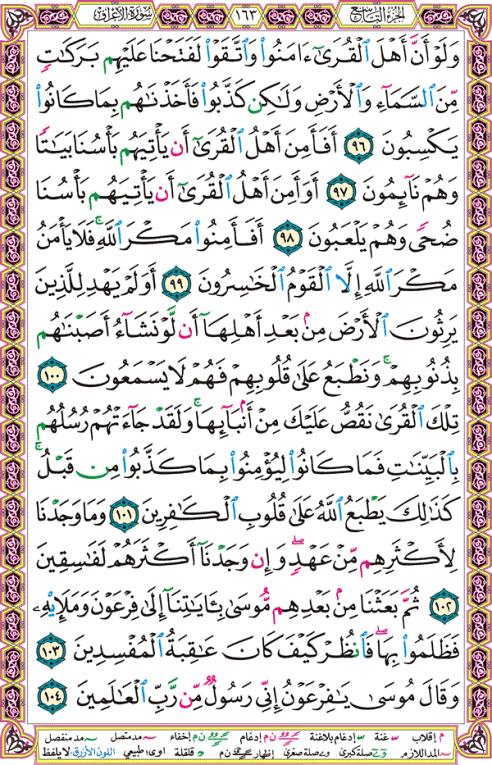 الجزء التاسع ١٦٣ سورة الأعراف
وَلَوْ أَنَّ أَهْلَ ٱلْقُرَىٰٓ ءَامَنُوا۟ وَٱتَّقَوْا۟ لَفَتَحْنَا عَلَيْهِم بَرَكَـٰتٍ
مِّنَ ٱلسَّمَآءِ وَٱلْأَرْضِ وَلَـٰكِن كَذَّبُوا۟ فَأَخَذْنَـٰهُم بِمَا كَانُوا۟
يَكْسِبُونَ ٩٦ أَفَأَمِنَ أَهْلُ ٱلْقُرَىٰٓ أَن يَأْتِيَهُم بَأْسُنَا بَيَـٰتًا
وَهُمْ نَآئِمُونَ ٩٧ أَوَأَمِنَ أَهْلُ ٱلْقُرَىٰٓ أَن يَأْتِيَهُم بَأْسُنَا
ضُحًى وَهُمْ يَلْعَبُونَ ٩٨ أَفَأَمِنُوا۟ مَكْرَ ٱللَّهِ ۚ فَلَا يَأْمَنُ
مَكْرَ ٱللَّهِ إِلَّا ٱلْقَوْمُ ٱلْخَـٰسِرُونَ ٩٩ أَوَلَمْ يَهْدِ لِلَّذِينَ
يَرِثُونَ ٱلْأَرْضَ مِنۢ بَعْدِ أَهْلِهَآ أَن لَّوْ نَشَآءُ أَصَبْنَـٰهُم
بِذُنُوبِهِمْ ۚ وَنَطْبَعُ عَلَىٰ قُلُوبِهِمْ فَهُمْ لَا يَسْمَعُونَ ١٠٠
تِلْكَ ٱلْقُرَىٰ نَقُصُّ عَلَيْكَ مِنْ أَنۢبَآئِهَا ۚ وَلَقَدْ جَآءَتْهُمْ رُسُلُهُم
بِٱلْبَيِّنَـٰتِ فَمَا كَانُوا۟ لِيُؤْمِنُوا۟ بِمَا كَذَّبُوا۟ مِن قَبْلُ ۚ
كَذَٰلِكَ يَطْبَعُ ٱللَّهُ عَلَىٰ قُلُوبِ ٱلْكَـٰفِرِينَ ١٠١ وَمَا وَجَدْنَا
لِأَكْثَرِهِم مِّنْ عَهْدٍ ۖ وَإِن وَجَدْنَآ أَكْثَرَهُمْ لَفَـٰسِقِينَ
١٠٢ ثُمَّ بَعَثْنَا مِنۢ بَعْدِهِم مُّوسَىٰ بِـَٔايَـٰتِنَآ إِلَىٰ فِرْعَوْنَ وَمَلَإِي۟هِۦ
فَظَلَمُوا۟ بِهَا ۖ فَٱنظُرْ كَيْفَ كَانَ عَـٰقِبَةُ ٱلْمُفْسِدِينَ ١٠٣
وَقَالَ مُوسَىٰ يَـٰفِرْعَوْنُ إِنِّى رَسُولٌ مِّن رَّبِّ ٱلْعَـٰلَمِينَ ١٠٤
م إقلاب غنة إدغام بلاغنة ن م إدغام ن م إخفاء مد متصل مد منفصل
المد اللازم صلة كبرى صلة صغرى إظهار ن م قلقلة اوى: طبيعي اللون الأزرق: لا يلفظ